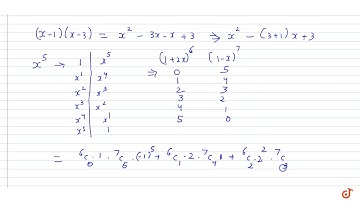 (x-1)(x-3) = x² - 3x - x + 3 ⇒ x² - (3+1)x + 3
x⁵ → 1 | x⁵ (1+2x)⁶ (1-x)⁷
x¹ | x⁴ ⇒ 0 5
x² | x³ 1 4
x³ | x² 2 3
x⁴ | x¹ 3 2
x⁵ | 1 4 1
5 0
= ⁶C₀·1·⁷C₅·(-1)⁵ + ⁶C₁·2·⁷C₄ + ⁶C₂·2²·⁷C₃